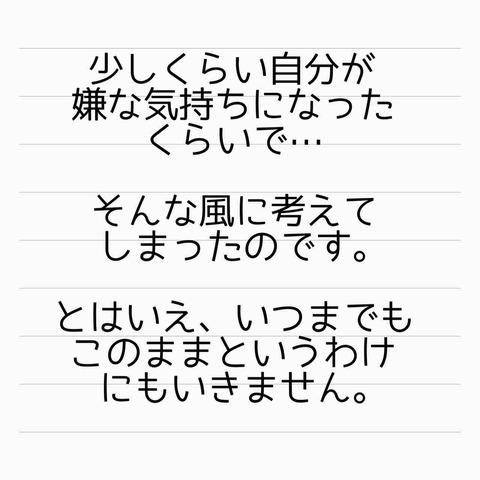 少しくらい自分が
嫌な気持ちになった
くらいで…
そんな風に考えて
しまったのです。
とはいえ、いつまでも
このままというわけ
にもいきません。